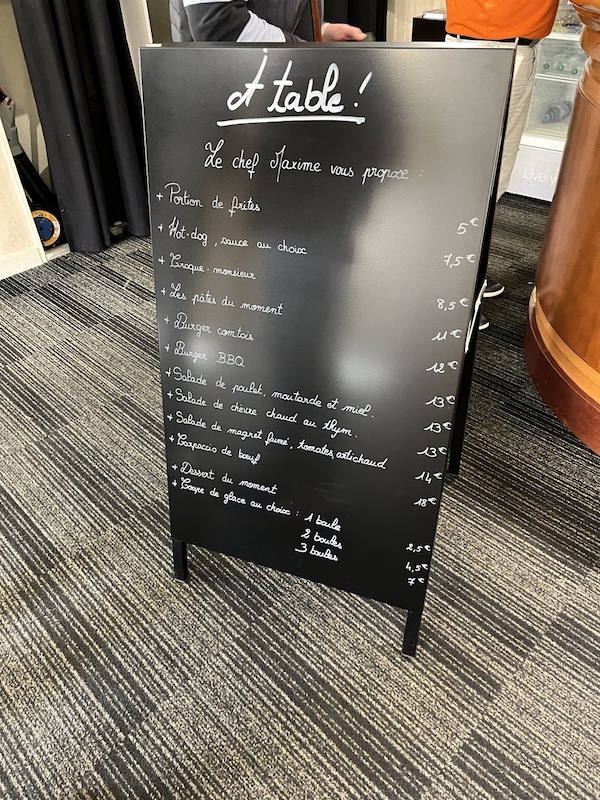 À table !
Le chef Maxime vous propose :
+ Portion de frites 5€
+ Hot-dog, sauce au choix 7,5€
+ Croque-monsieur 8,5€
+ Les pâtes du moment 11€
+ Burger comtois 12€
+ Burger BBQ 13€
+ Salade de poulet, moutarde et miel. 13€
+ Salade de chèvre chaud au thym. 13€
+ Salade de magret fumé, tomates, artichaud 14€
+ Carpaccio de bœuf 18€
+ Dessert du moment
+ Coupe de glace au choix : 1 boule 2,5€
2 boules 4,5€
3 boules 7€
Live